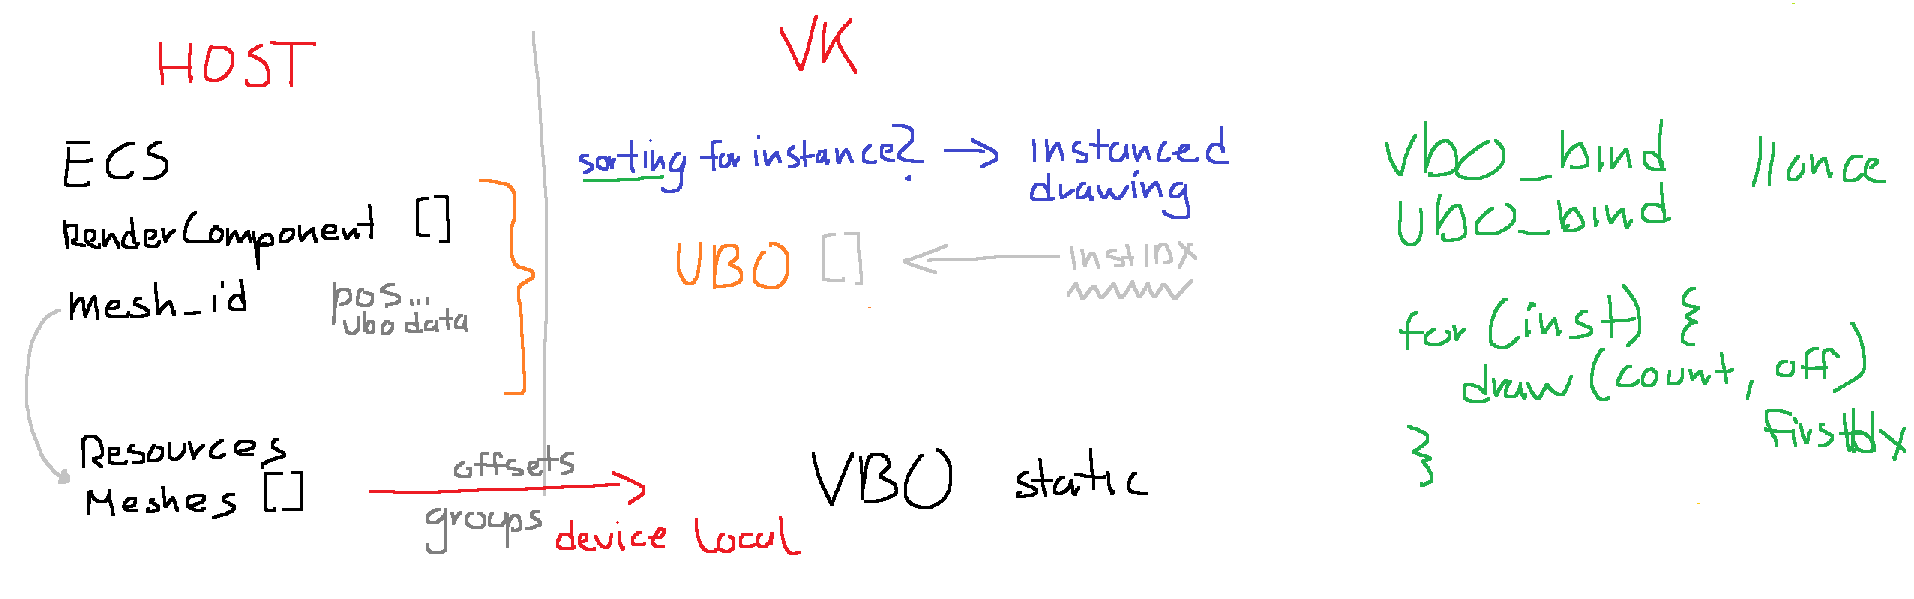 HOST
ECS
RenderComponent []
mesh_id
pos...
ubo data
Resources
Meshes []
offsets
groups
device local
VK
sorting for instance? → instanced
drawing
UBO [] ← instIDX
VBO static
VBO_bind //once
UBO_bind
for (inst) {
draw (count, off)
firstIdx
}